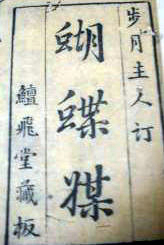 步月主人订
蝴蝶媒
鱣飛堂藏板